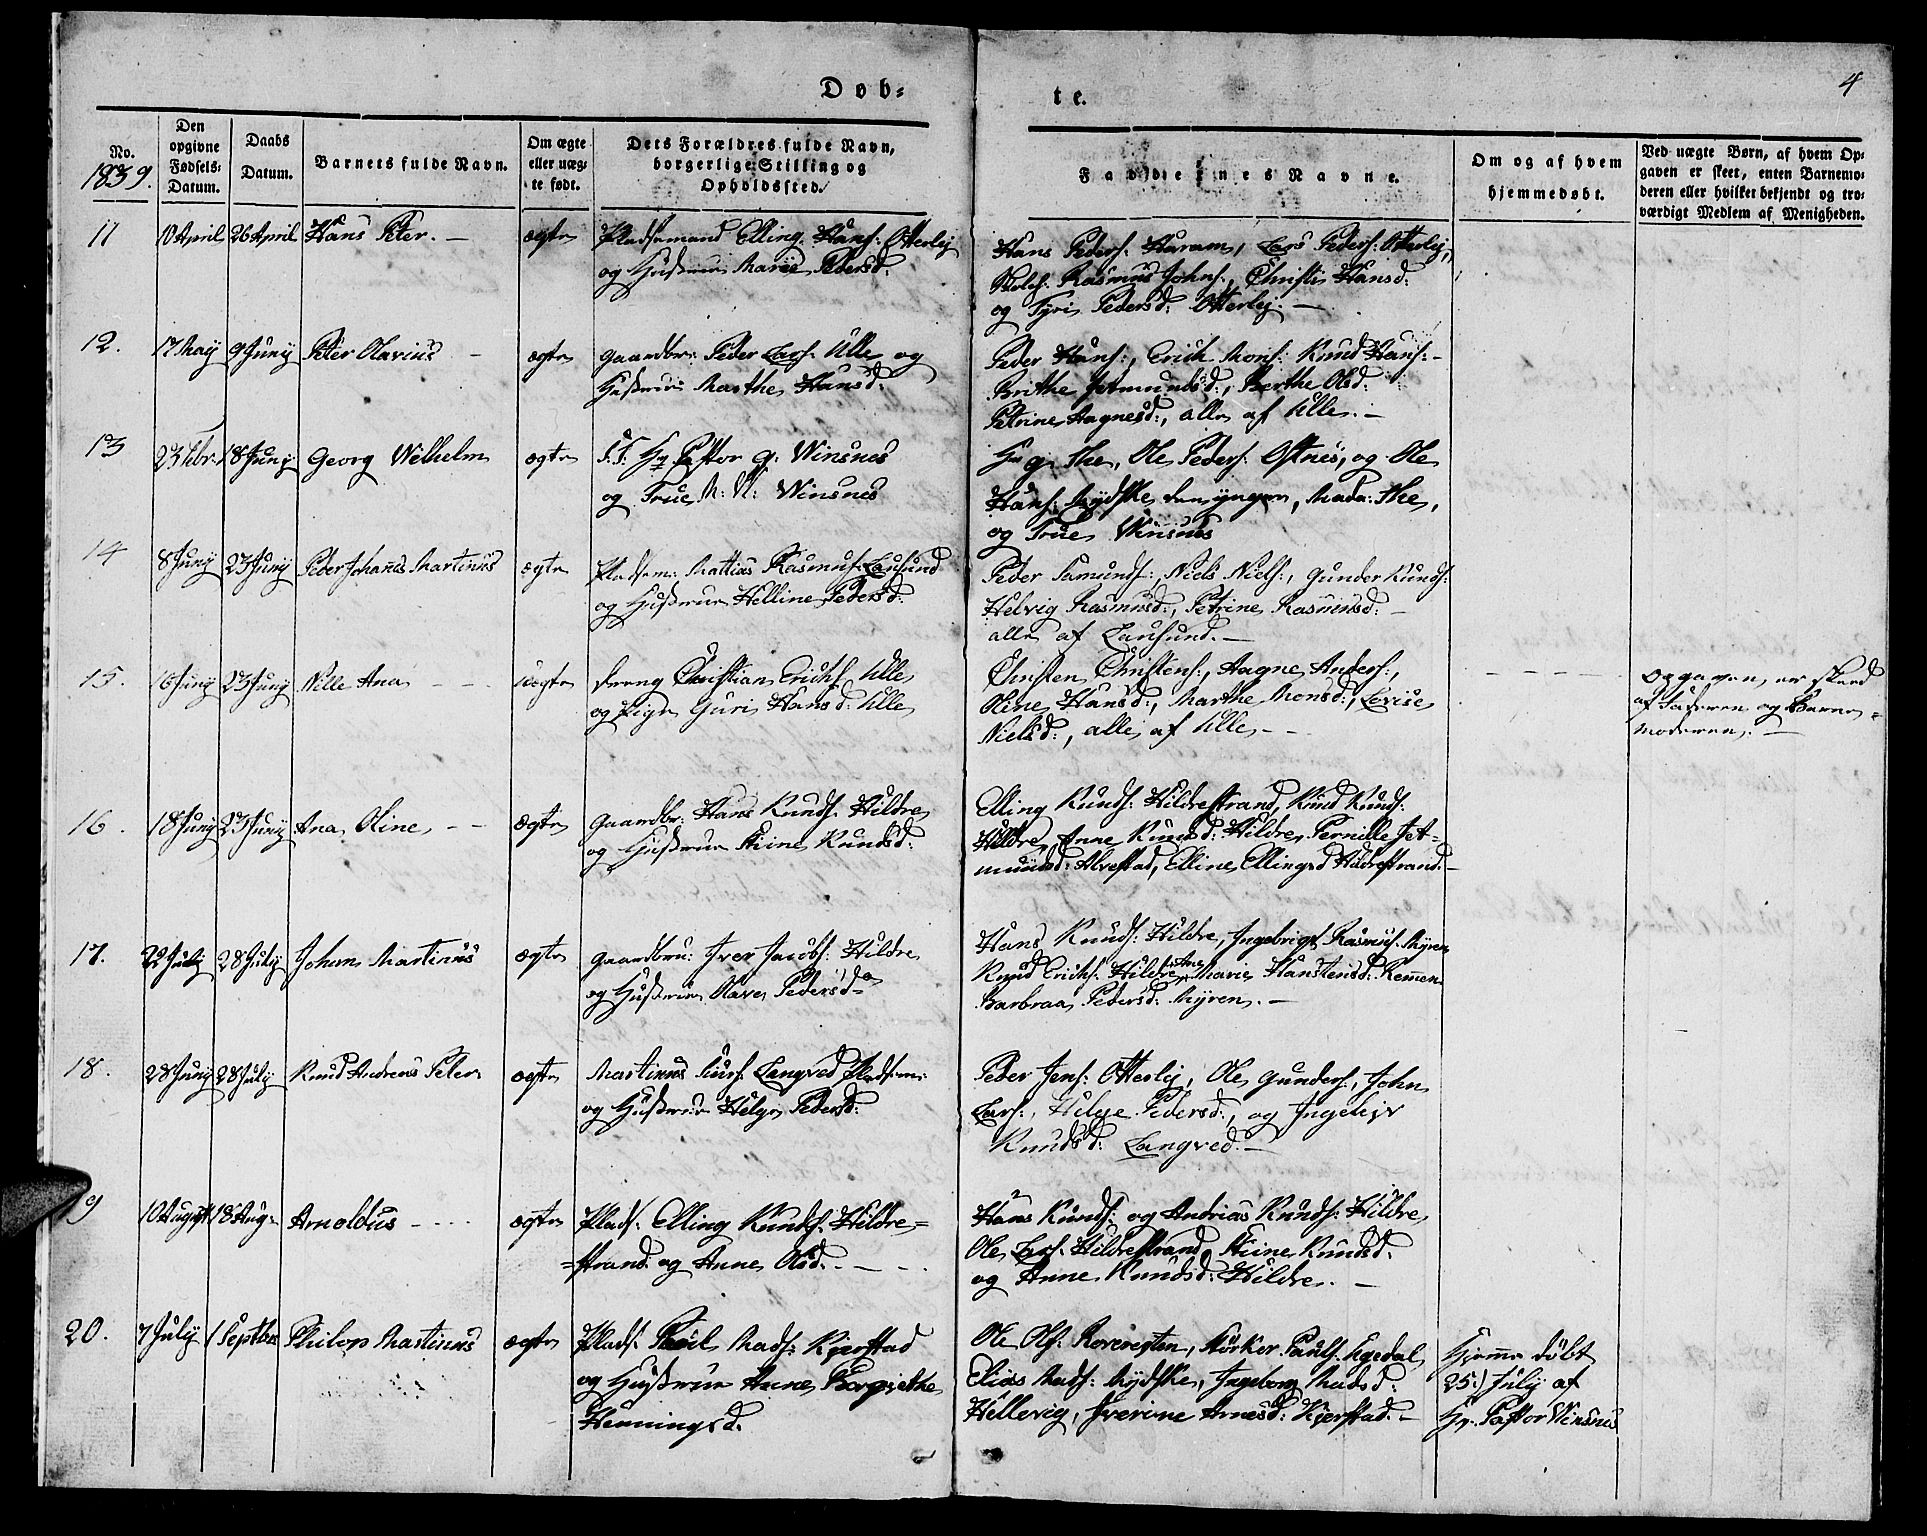 Døb=
te.
4
No.
1839.
Den
opgivne
Fødsels-
Datum.
Daabs
Datum.
Barnets fulde Navn.
Om ægte
eller uæg-
te født.
Dets Forældres fulde Navn,
borgerlige Stilling og
Opholdssted.
Faddernes Navne.
Om og af hvem
hjemmedøbt.
Ved uægte Børn, af hvem Op-
gaven er skeet, enten Barnemo-
deren eller hvilket bekjendt og tro-
værdigt Medlem af Menigheden.
11 10 April 26 April Hans Peter. — ægte
Pladsemand Elling Hans: Otterlej
og Hustrue Marie Pedersd:
Hans Peders: Haram, Lars Peders: Otterlej,
Rasmus Johns:, Christi Hansd:
og Pedersd: Otterlej. —
12. 17 May 9 Juny Peter Olavius — ægte
Gaardbr: Peder Lars: Ulle og
Hustrue Marthe Hansd:
Peder Hans:, Erich Mons: Knud Hans: -
Brithe Jetmundsd:, Berthe Olsd:
Petrine Aagnesd:, alle af Ulle. —
13 18 Juny Georg Wilhelm ægte
S.T. Hr Pastor G. Winsnes
og Frue Winsnes
Hr G. She, Ole Peders: Ostnes, og Ole
Hans: Mydske den yngere, Mada: She,
og Frue Winsnes
14 8 Juny 23 Juny Peder Johanes Martinus ægte
Pladsem: Mattias Rasmus: Lausund
og Hustrue Helline Pedersd:
Peder Samunds:, Niels Niels:, Gunder Knuds:
Helvig Rasmusd:, Petrine Rasmusd: —
alle af Lausund. —
15. 16 Juny 23 Juny Nille Ana — — uægte
dreng Christian Erichs: Ulle
og Pige Guri Hansd: Ulle
Christen Christens:, Aagne Anders:,
Oline Hansd:, Marthe Monsd:, Lovise
Nielsd:, alle af Ulle. —
Opgaven er skeed
af Faderen og Barne=
moderen. —
16. 18 Juny 23 Juny Ana Oline — — ægte
Gaardbr: Hans Knuds: Hildre
og Hustrue Stine Knudsd:
Elling Knuds: Hildrestrand, Knud Knuds:
Hildre, Anne Knudsd: Hildre, Pernille Jet=
mundsd: Alvestad, Elline Ellingsd Hildrestrand. —
17. 22 July 28 July Johan Martinus ægte
Gaardbru: Iver Jacobs: Hildre
og Hustrue Olave Pedersd=
Hans Knuds: Hildre, Ingebrigt Rasmus: Myren
Knud Erichs: Hildre, Ane Marie Hanstensd: Remmen
Barbraa Pedersd: Myren. —
18. 28 Juny 28 July Knud Andreas Peter ægte
Martinus Langved Pladsem:
og Hustrue Helge Pedersd:
Peder Jens: Otterlej, Ole Gunders:, John
Lars:, Helge Pedersd:, og Ingeleje
Knudsd: Langved. —
19 10 August 18 Aug= Arnoldus - . . . . ægte
Plads: Elling Knuds: Hildre=
=strand og Anne Olsd: . — . .
Hans Knuds: og Andrias Knuds: Hildre
Ole Lars: Hildrestrand, Stine Knudsd:
og Anne Knudsd: Hildre. —
20. 7 July 1 Septber Philip Martinus ægte
Plads: Poul Mads: Kjerstad
og Hustrue Anne Bergiethe
Henningsd.
Ole Ols: Roveregten, Størker Pauls: Egedal
Elias Mads: Mydske, Ingeborg Madsd:
Hellevig, Iverine Arnesd: Kjerstad. —
Hjemme døbt
25. July af
Hr. Pastor Winsnes